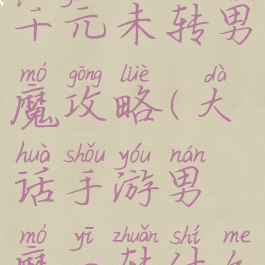 千元未转男
mó gōng lüè dà
魔攻略(大
huà shǒu yóu nán
话手游男
mó yī zhuǎn shí me
魔一转什么